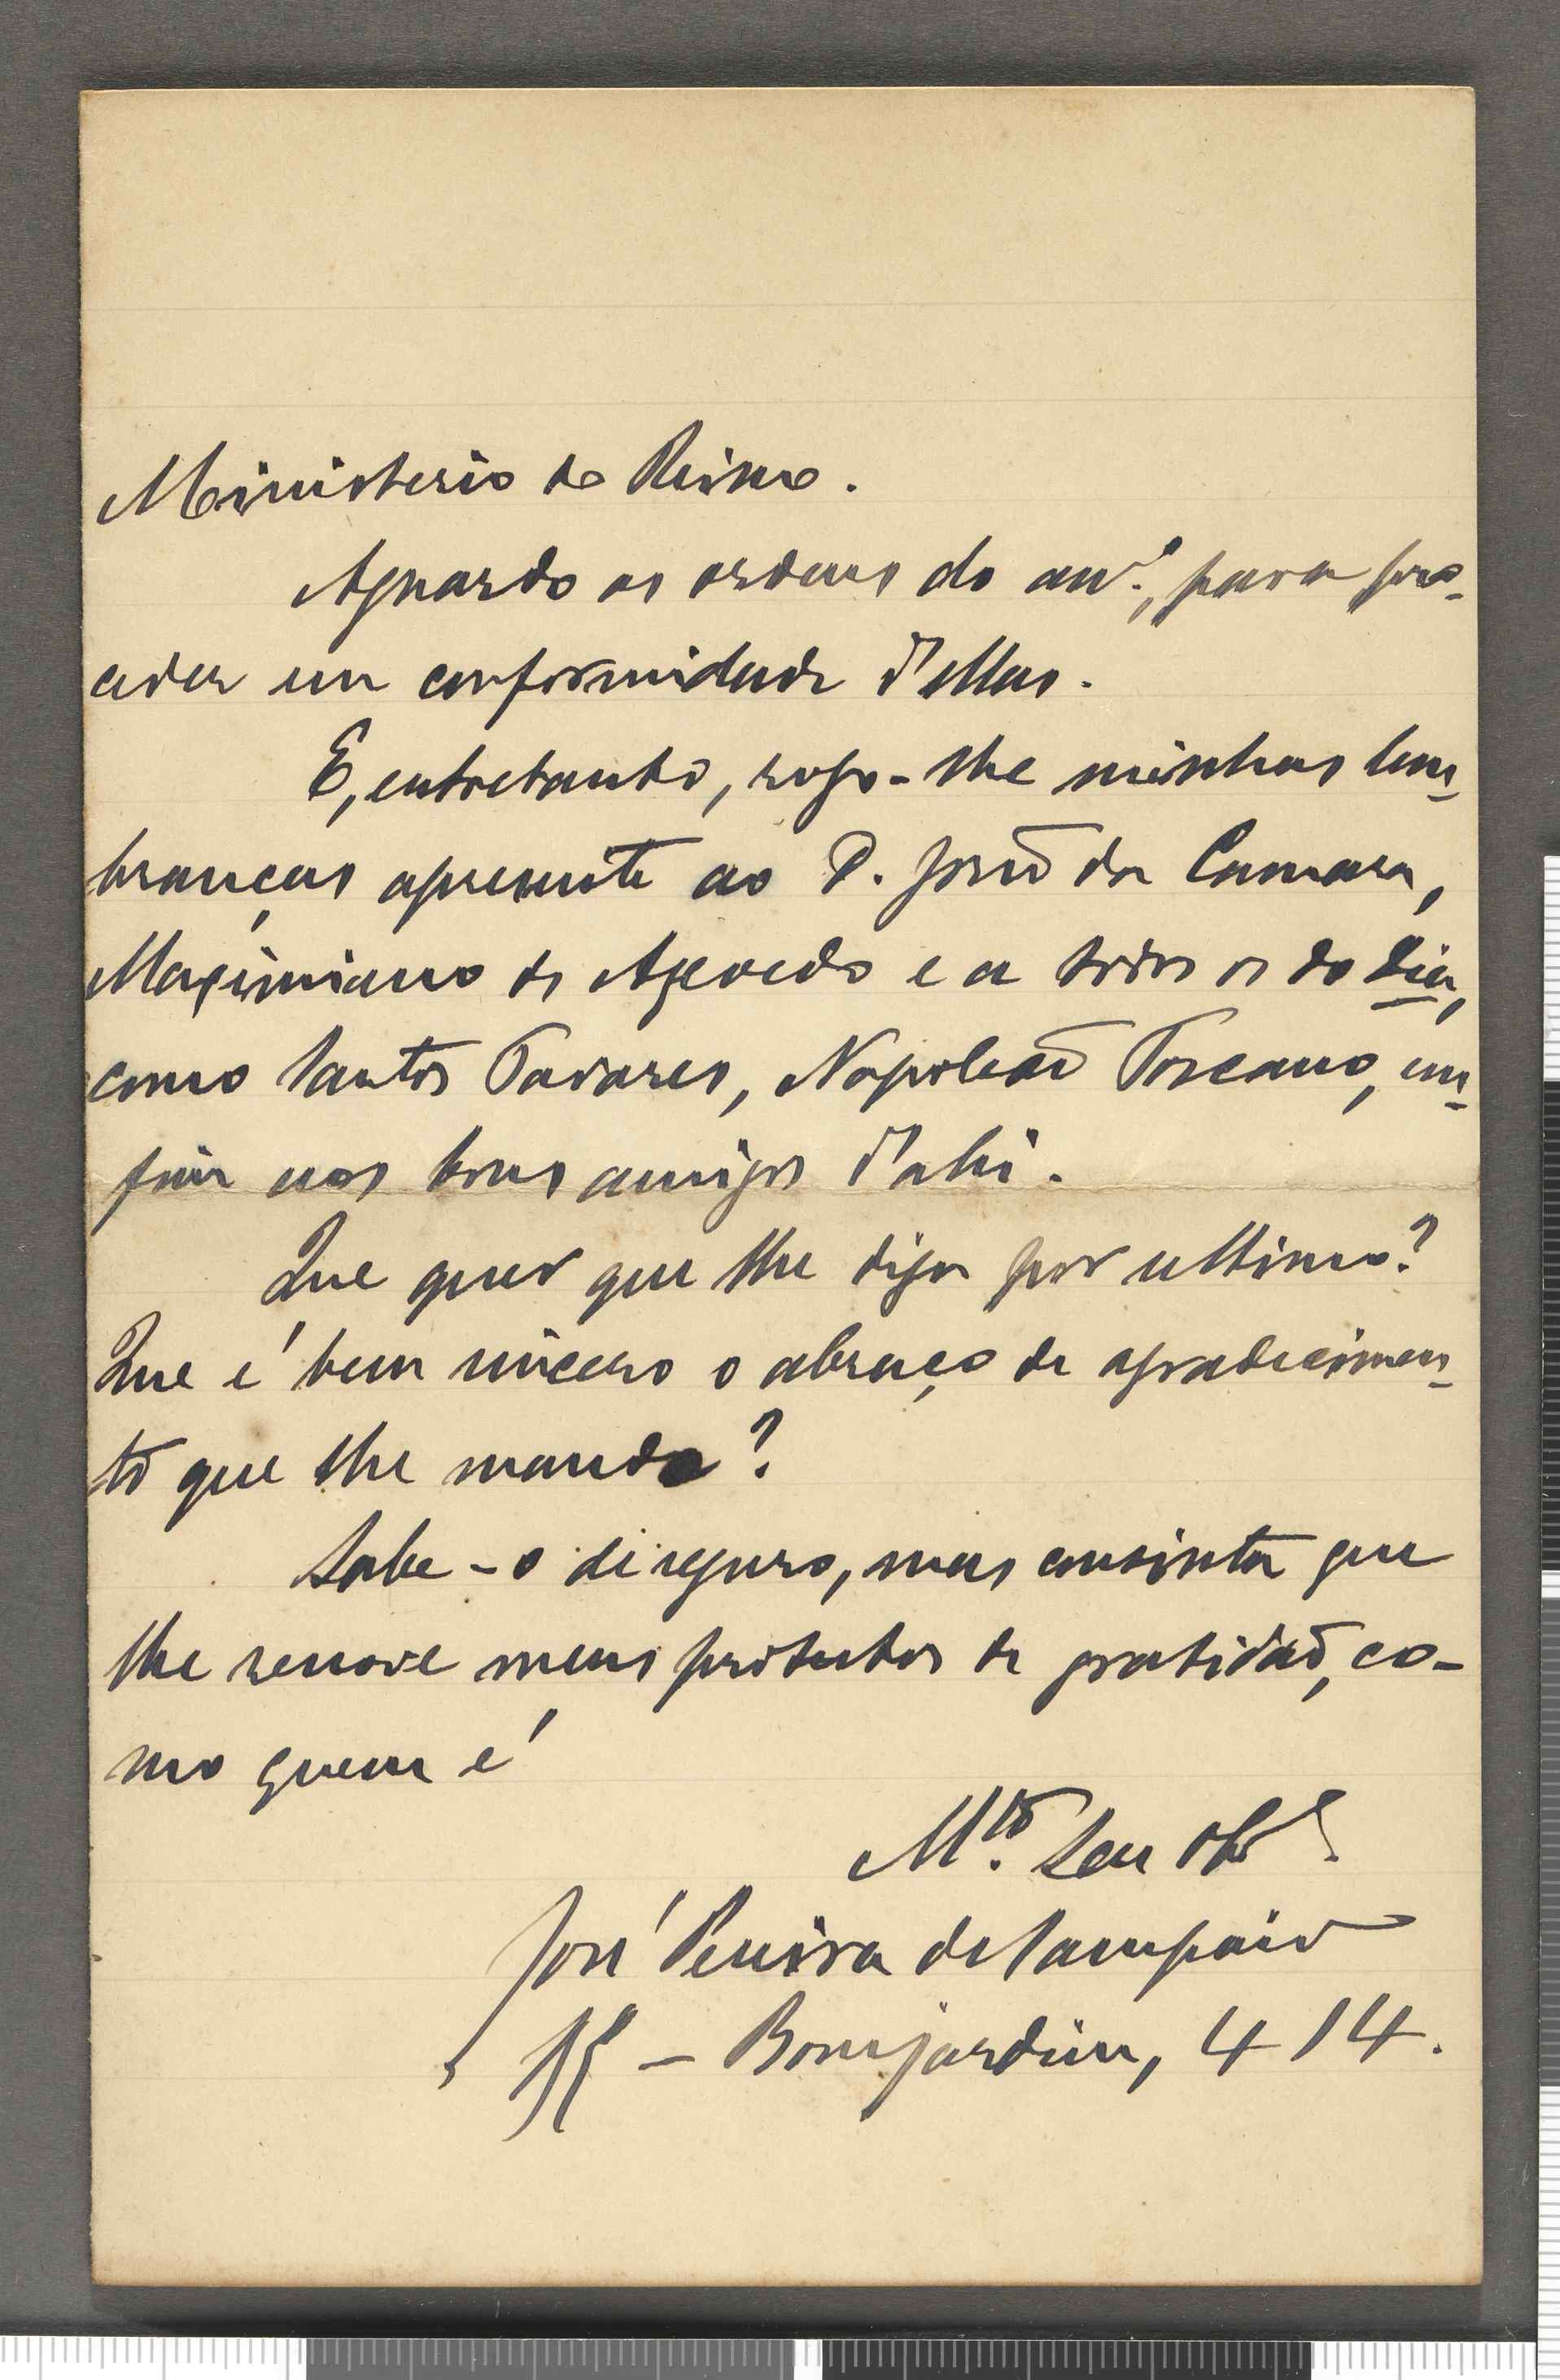 Ministerio do Reino.
Aguardo as ordens do am.º, para pro-
ceder em conformidade d'ellas.
E, entretanto, rogo-lhe minhas lem-
branças apresente ao D. João da Camara,
Maximiano de Azevedo e a todos os do Dia,
como Santos Tavares, Napoleão Toscano, em-
fim aos bons amigos d'ahi.
Que quer que lhe diga por ultimo?
Que é bem sincero o abraço de agradecimen-
to que lhe manda?
Sabe-o de seguro, mas consinta que
lhe renove meus protestos de gratidão, co-
mo quem é
M.to seu
José Pereira de Sampaio
Bomjardim, 414.